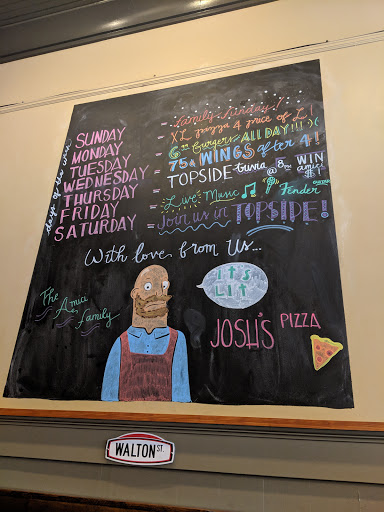 days of the week
SUNDAY = Family Sunday!!
MONDAY = XL pizza 4 price of L!
TUESDAY = 6⁰⁰ Burgers ALL DAY!!!
WEDNESDAY = 75¢ WINGS after 4!
THURSDAY = TOPSIDE trivia @ 8pm WIN amici $!
FRIDAY = Live Music Fender
SATURDAY = Join us in TOPSIDE!
With love from Us...
The Amici Family
IT'S LIT
JOSH'S PIZZA
WALTON ST.